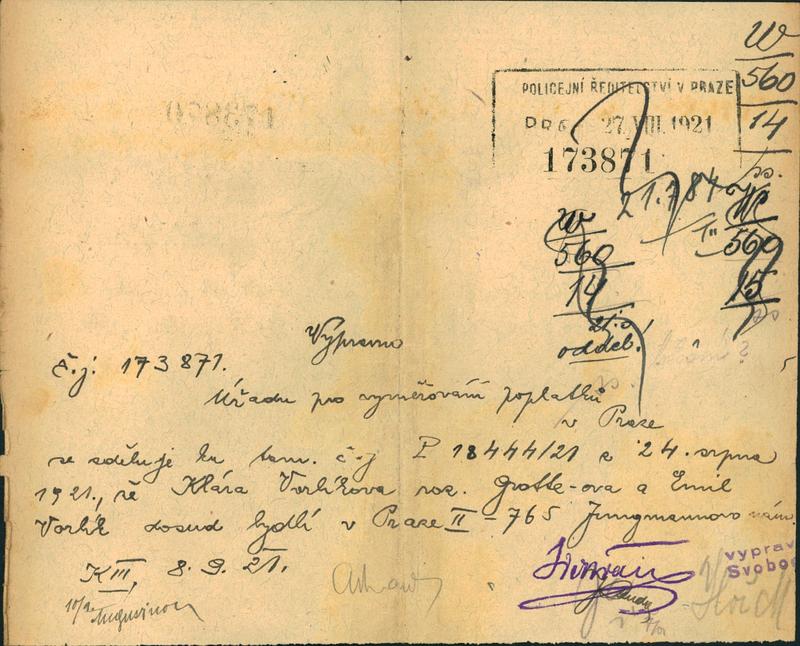 W
560
14
POLICEJNÍ ŘEDITELSTVÍ V PRAZE
PRA 27. VIII. 1921
173871
21.7 84
W
560
14
W
560
15
odděl.
Vypraveno
Č.j. 173871.
Úřadu pro vyměřování poplatků
v Praze
se sděluje ku tam. č.j. P 18444/21 z 24. srpna
1921., že Klára Vorlíkova roz. Grotte-ova a Emil
Vorlík dosud bydlí v Praze II - 765 Jungmannovo nám.
K III, 8. 9. 21.
vyprav
Svobod